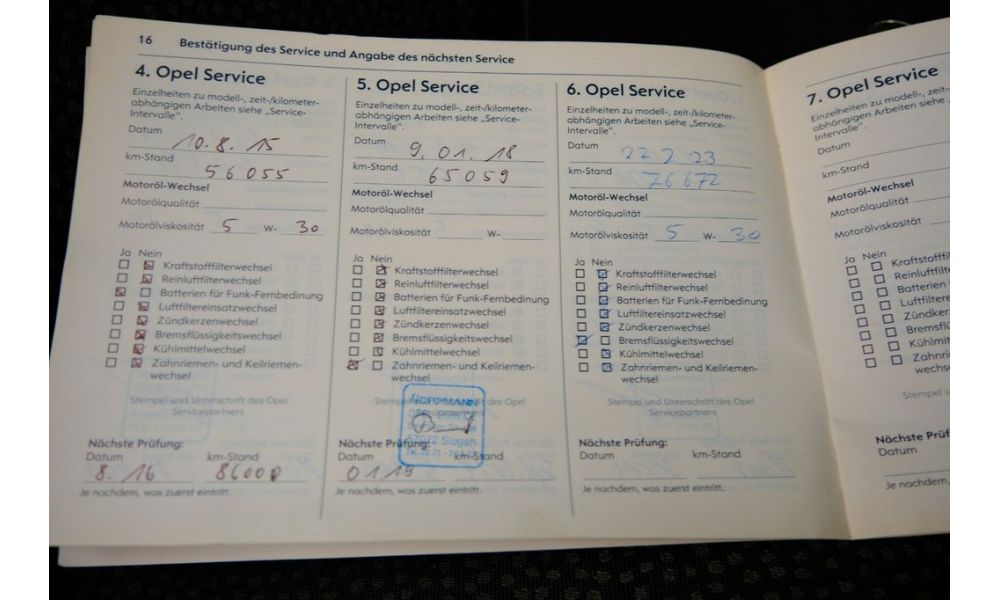 16 Bestätigung des Service und Angabe des nächsten Service
4. Opel Service
Einzelheiten zu modell-, zeit-/kilometer-
abhängigen Arbeiten siehe „Service-
Intervalle".
Datum
10.8.15
km-Stand
56055
Motoröl-Wechsel
Motorölqualität
Motorölviskosität 5 W- 30
Ja Nein
Kraftstofffilterwechsel
Reinluftfilterwechsel
Batterien für Funk-Fernbedinung
Luftfiltereinsatzwechsel
Zündkerzenwechsel
Bremsflüssigkeitswechsel
Kühlmittelwechsel
Zahnriemen- und Keilriemen-
wechsel
Stempel und Unterschrift des Opel
Servicepartners
Nächste Prüfung:
Datum km-Stand
8.16 86000
Je nachdem, was zuerst eintritt.
5. Opel Service
Einzelheiten zu modell-, zeit-/kilometer-
abhängigen Arbeiten siehe „Service-
Intervalle".
Datum
9.01.18
km-Stand
65059
Motoröl-Wechsel
Motorölqualität
Motorölviskosität W-
Ja Nein
Kraftstofffilterwechsel
Reinluftfilterwechsel
Batterien für Funk-Fernbedinung
Luftfiltereinsatzwechsel
Zündkerzenwechsel
Bremsflüssigkeitswechsel
Kühlmittelwechsel
Zahnriemen- und Keilriemen-
wechsel
HOPPMANN
57072 Siegen
Nächste Prüfung:
Datum km-Stand
01 19
Je nachdem, was zuerst eintritt.
6. Opel Service
Einzelheiten zu modell-, zeit-/kilometer-
abhängigen Arbeiten siehe „Service-
Intervalle".
Datum
22 2 23
km-Stand
76672
Motoröl-Wechsel
Motorölqualität
Motorölviskosität 5 W- 30
Ja Nein
Kraftstofffilterwechsel
Reinluftfilterwechsel
Batterien für Funk-Fernbedinung
Luftfiltereinsatzwechsel
Zündkerzenwechsel
Bremsflüssigkeitswechsel
Kühlmittelwechsel
Zahnriemen- und Keilriemen-
wechsel
Stempel und Unterschrift des Opel
Servicepartners
Nächste Prüfung:
Datum km-Stand
Je nachdem, was zuerst eintritt.
7. Opel Service
Einzelheiten zu modell-, zeit-
abhängigen Arbeiten siehe
Intervalle".
Datum
km-Stand
Motoröl-Wechsel
Motorölqualität
Motorölviskosität
Ja Nein
Kraftstofffilt
Reinluftfilt
Batterien f
Luftfiltere
Zündker
Bremsfl
Kühlmit
Zahnri
wechs
Stempel u
Nächste Prüf
Datum
Je nachdem,